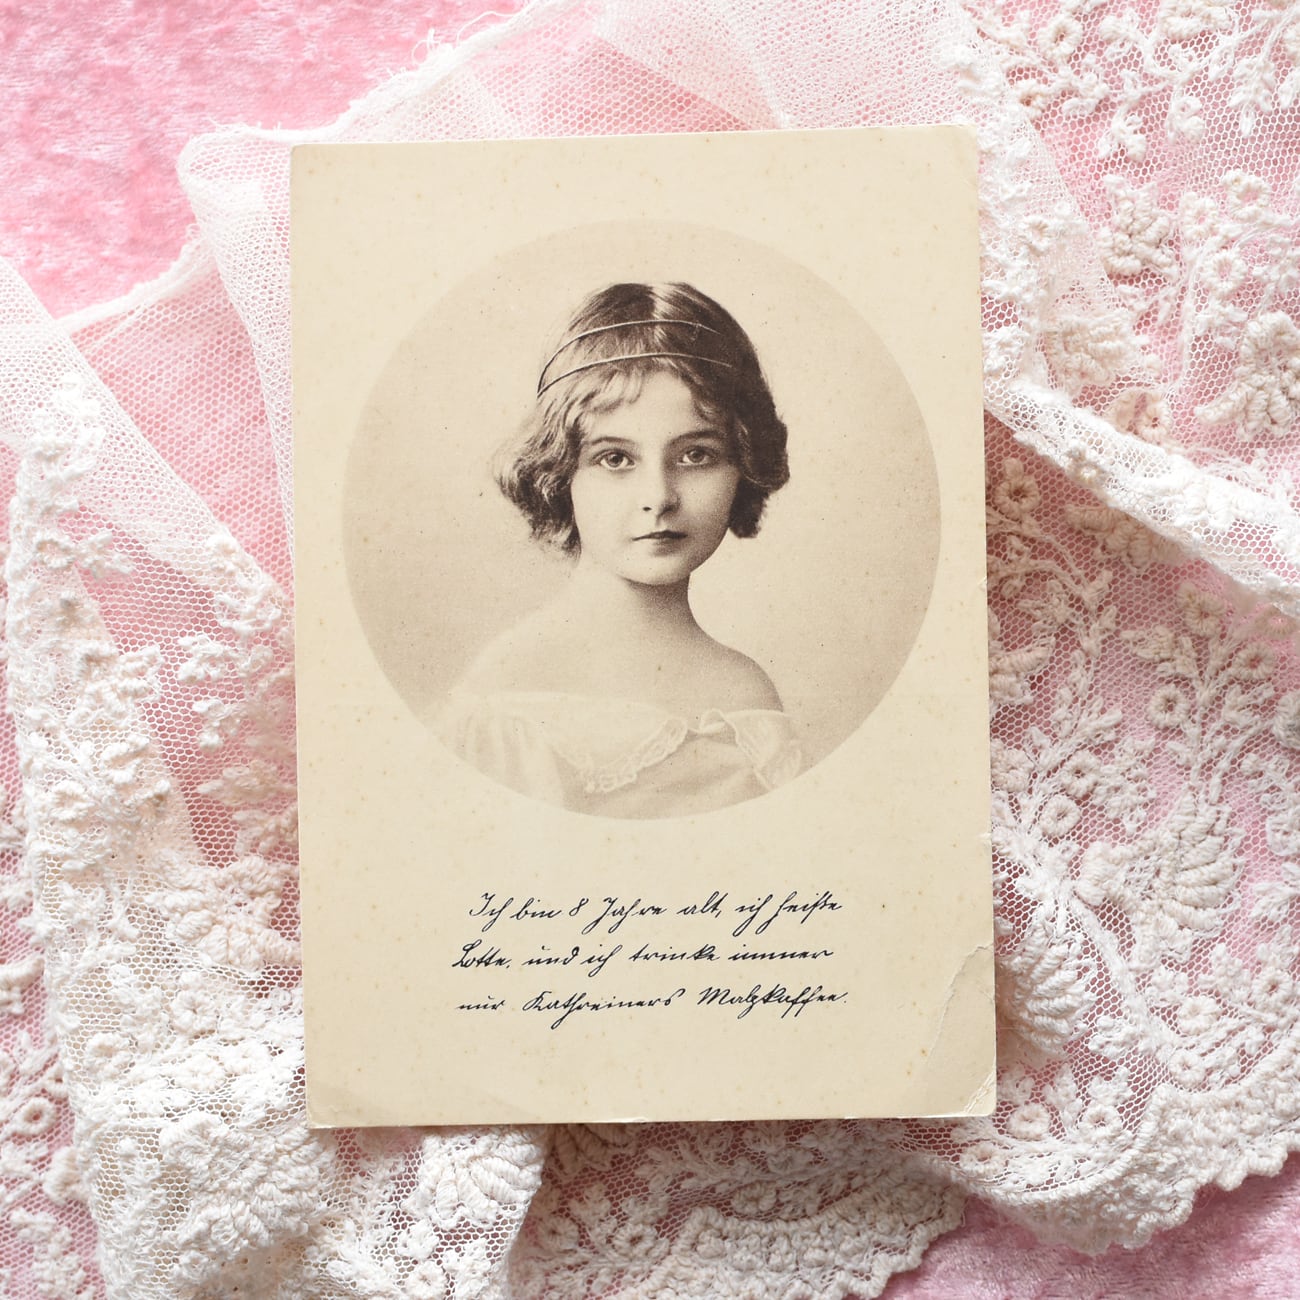 Ich bin 8 Jahre alt, ich heiße
Lotte, und ich trinke immer
nur Kathreiners Malzkaffee.